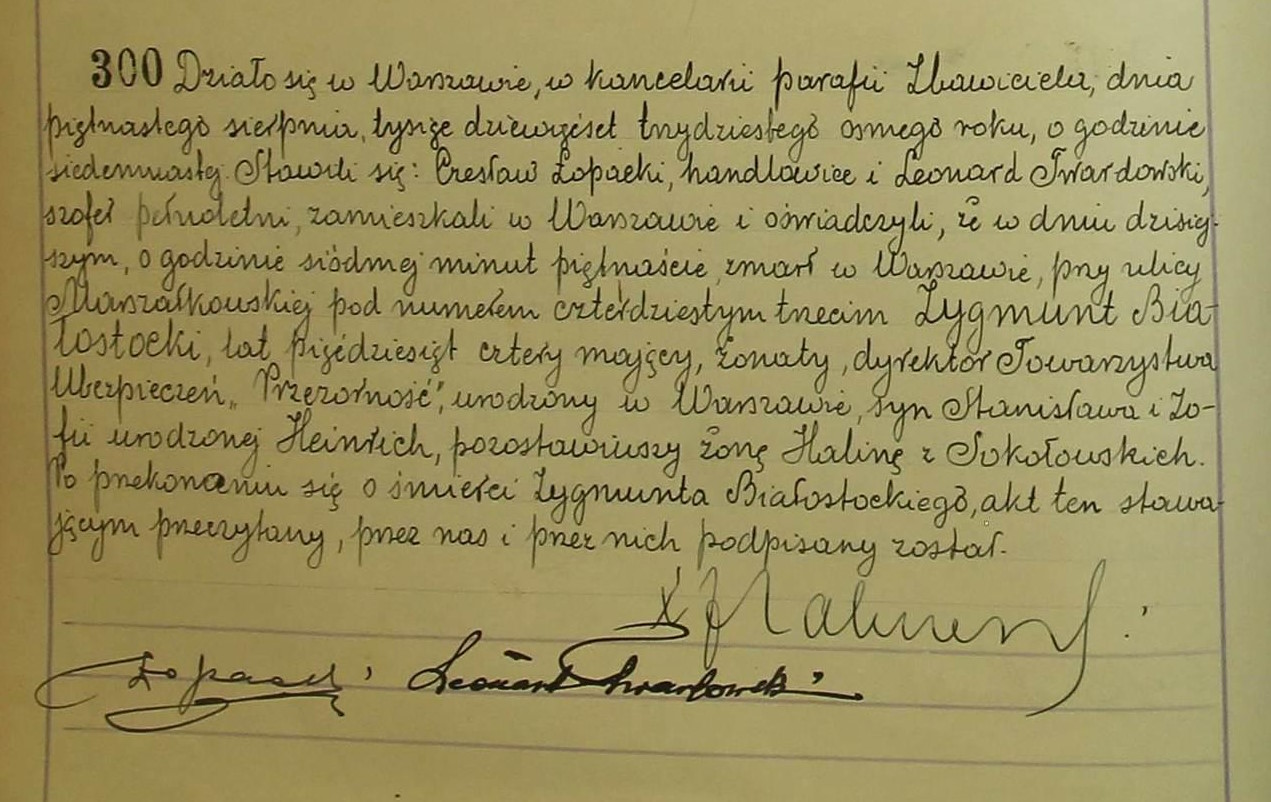 300 Działo się w Warszawie, w kancelarii parafii Zbawiciela, dnia
piętnastego sierpnia, tysiąc dziewięćset trzydziestego ósmego roku, o godzinie
siedemnastej. Stawili się: Czesław Łopacki, handlowiec i Leonard Twardowski,
szofer pełnoletni, zamieszkali w Warszawie i oświadczyli, że w dniu dzisiej-
szym, o godzinie siódmej minut piętnaście, zmarł w Warszawie, przy ulicy
Marszałkowskiej pod numerem czterdziestym trzecim Zygmunt Bia-
łostocki, lat pięćdziesiąt cztery mający, żonaty, dyrektor Towarzystwa
Ubezpieczeń „Przezorność”, urodzony w Warszawie, syn Stanisława i Zo-
fii urodzonej Heinrich, pozostawiwszy żonę Halinę z Sokołowskich.
Po przekonaniu się o śmierci Zygmunta Białostockiego, akt ten stawa-
jącym przeczytany, przez nas i przez nich podpisany został.
X.
Łopacki Leonard Twardowski